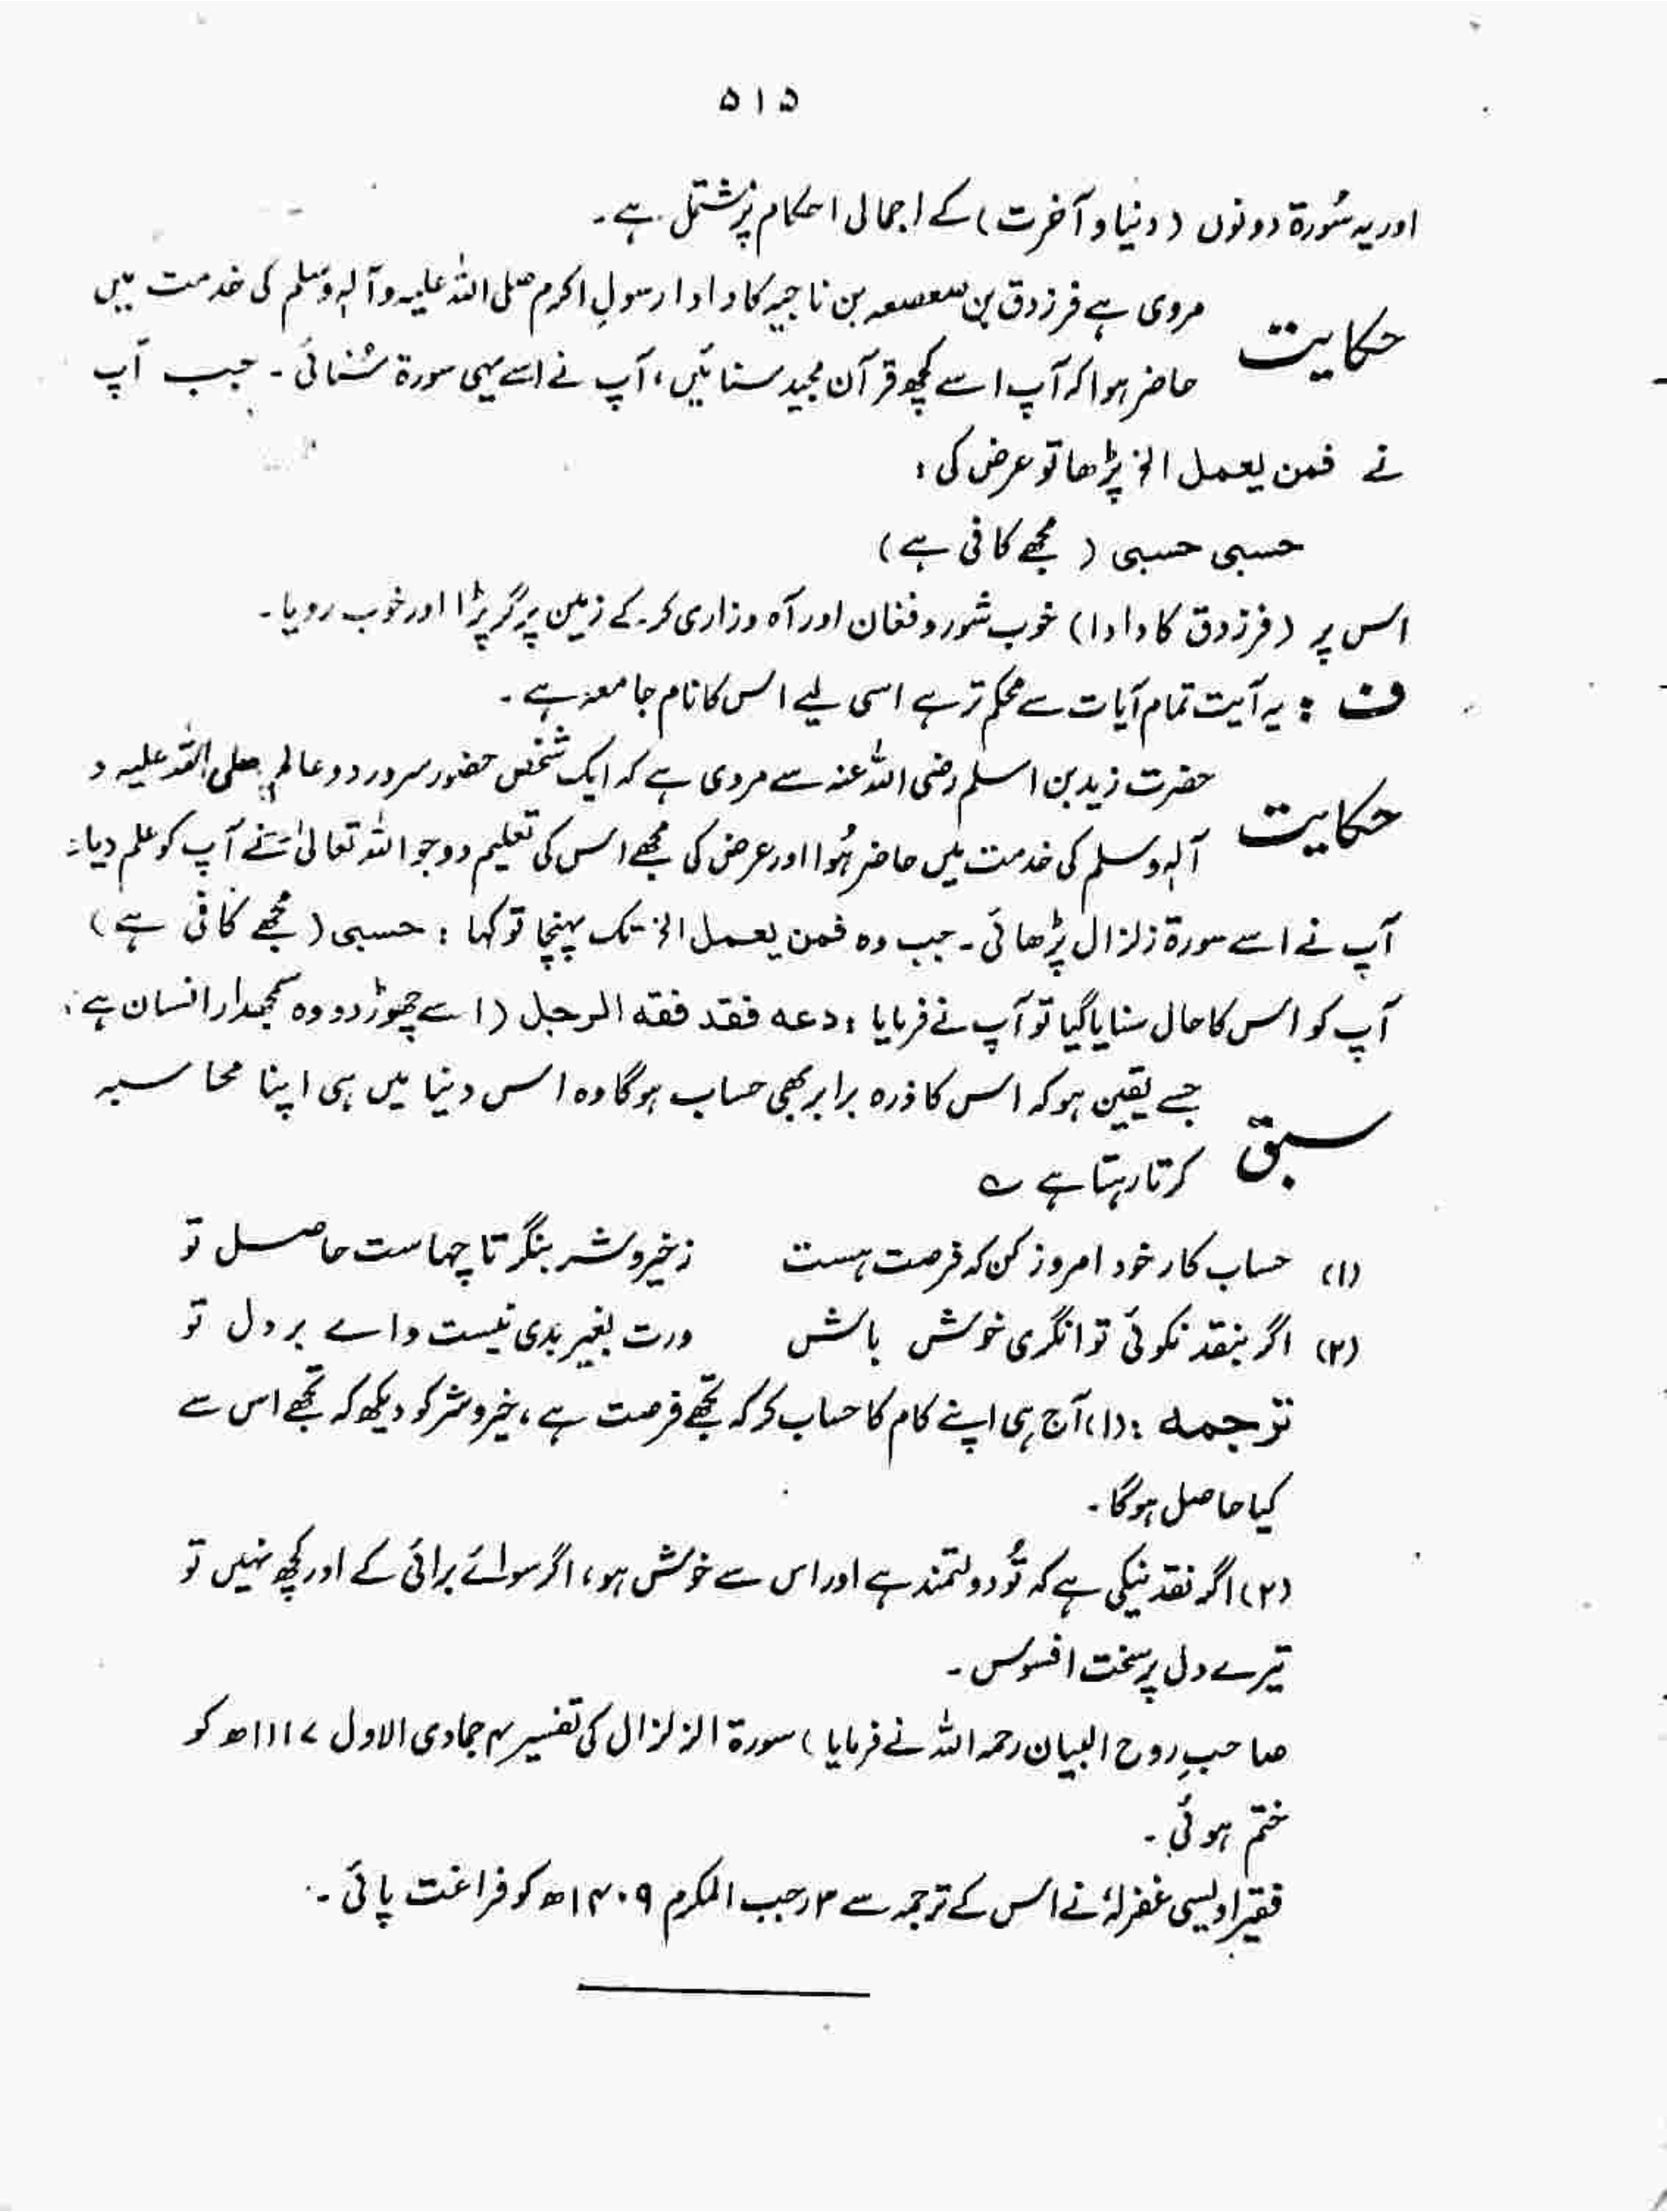 ۵۱۵
اور یہ سُورۃ دونوں (دنیا و آخرت) کے اجمالی احکام پر مشتمل ہے۔
حکایت مروی ہے فرزدق بن صعصعہ بن ناجیہ کا دادا رسولِ اکرم صلی اللہ علیہ وآلہٖ وسلم کی خدمت میں
حاضر ہوا کہ آپ اسے کچھ قرآن مجید سنائیں، آپ نے اسے یہی سورۃ سُنائی۔ جب آپ
نے فمن یعمل الخ پڑھا تو عرض کی:
حسبی حسبی (مجھے کافی ہے)
اس پر (فرزدق کا دادا) خوب شور و فغان اور آہ و زاری کر کے زمین پر گر پڑا اور خوب رویا۔
ف: یہ آیت تمام آیات سے محکم تر ہے اسی لیے اس کا نام جامعہ ہے۔
حکایت حضرت زید بن اسلم رضی اللہ عنہ سے مروی ہے کہ ایک شخص حضور سرورِ دو عالم صلی اللہ علیہ و
آلہٖ وسلم کی خدمت میں حاضر ہُوا اور عرض کی مجھے اس کی تعلیم دو جو اللہ تعالیٰ نے آپ کو علم دیا۔
آپ نے اسے سورۃ زلزال پڑھائی۔ جب وہ فمن یعمل الخ تک پہنچا تو کہا: حسبی (مجھے کافی ہے)
آپ کو اس کا حال سنایا گیا تو آپ نے فرمایا: دعہ فقد فقہ الرجل (اسے چھوڑ دو وہ سمجھدار انسان ہے)
سبق جسے یقین ہو کہ اس کا ذرہ برابر بھی حساب ہوگا وہ اس دنیا میں ہی اپنا محاسبہ
کرتا رہتا ہے ؎
(۱) حساب کار خود امروز کن کہ فرصت ہست زخیر و شر بنگر تا چہاست حاصل تو
(۲) اگر بنقد نکوئی توانگری خوش باش ورت بغیر بدی نیست واے بر دل تو
ترجمہ: (۱) آج ہی اپنے کام کا حساب کر کہ تجھے فرصت ہے، خیر و شر کو دیکھ کہ تجھے اس سے
کیا حاصل ہوگا۔
(۲) اگر نقد نیکی ہے کہ تُو دولتمند ہے اور اس سے خوش ہو، اگر سوائے برائی کے اور کچھ نہیں تو
تیرے دل پر سخت افسوس۔
صاحبِ روح البیان رحمہ اللہ نے فرمایا) سورۃ الزلزال کی تفسیر ۴ جمادی الاول ۱۱۱۷ھ کو
ختم ہوئی۔
فقیر اویسی غفرلہٗ نے اس کے ترجمہ سے ۳ رجب المکرم ۱۴۰۹ھ کو فراغت پائی۔